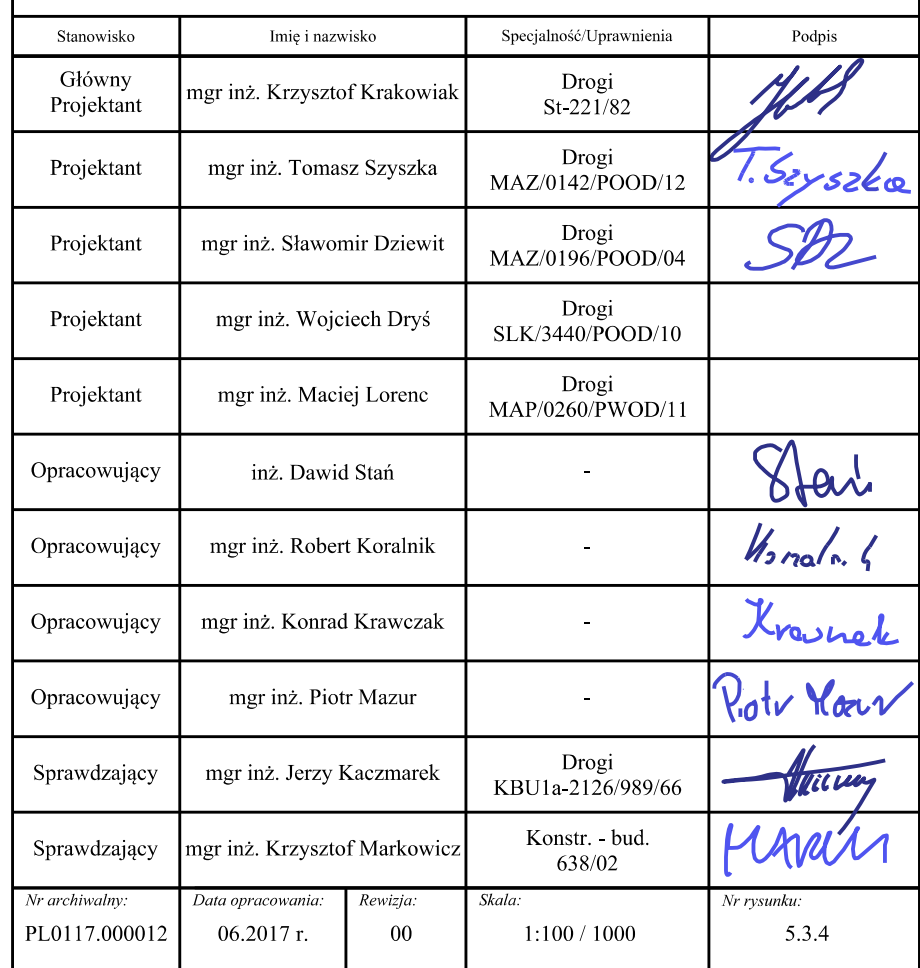 Stanowisko Imię i nazwisko Specjalność/Uprawnienia Podpis
Główny
Projektant
mgr inż. Krzysztof Krakowiak
Drogi
St-221/82
Projektant
mgr inż. Tomasz Szyszka
Drogi
MAZ/0142/POOD/12
T. Szyszka
Projektant
mgr inż. Sławomir Dziewit
Drogi
MAZ/0196/POOD/04
Projektant
mgr inż. Wojciech Dryś
Drogi
SLK/3440/POOD/10
Projektant
mgr inż. Maciej Lorenc
Drogi
MAP/0260/PWOD/11
Opracowujący
inż. Dawid Stań
-
Stań
Opracowujący
mgr inż. Robert Koralnik
-
Opracowujący
mgr inż. Konrad Krawczak
-
Opracowujący
mgr inż. Piotr Mazur
-
Piotr Mazur
Sprawdzający
mgr inż. Jerzy Kaczmarek
Drogi
KBU1a-2126/989/66
Sprawdzający
mgr inż. Krzysztof Markowicz
Konstr. - bud.
638/02
Nr archiwalny: Data opracowania: Rewizja: Skala: Nr rysunku:
PL0117.000012 06.2017 r. 00 1:100 / 1000 5.3.4